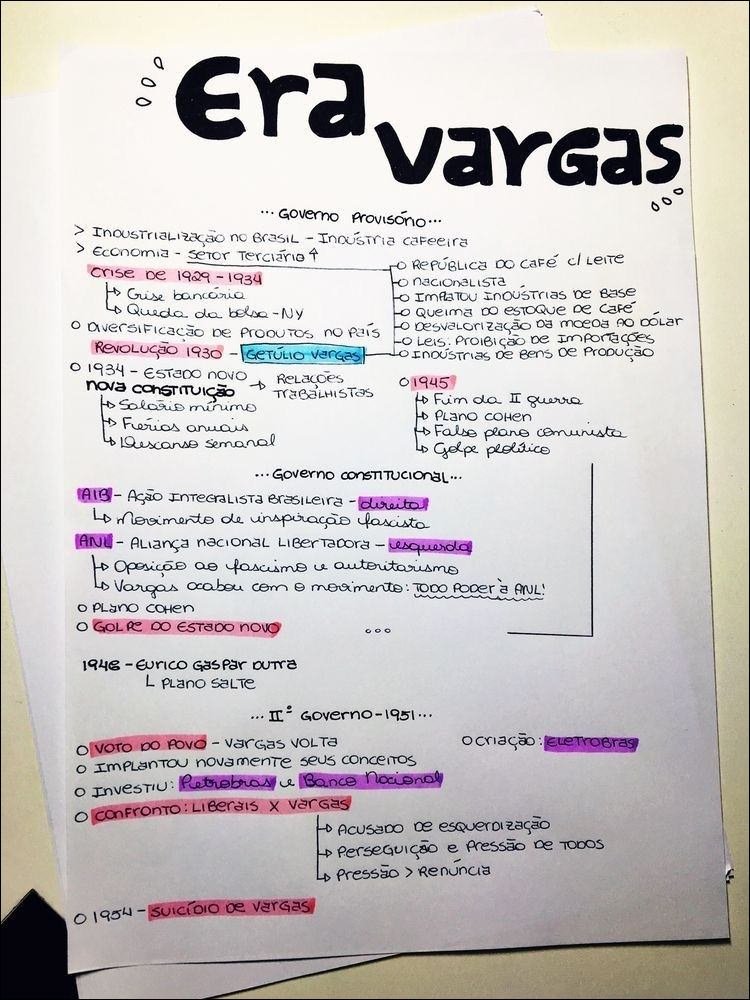 Era
vargas
...Governo Provisório...
> Industrialização no Brasil - Indústria cafeeira
> Economia - Setor Terciário ↑
Crise de 1929-1934
↳ Crise bancária
↳ Queda da bolsa - NY
○ Diversificação de produtos no país
Revolução 1930 - Getúlio Vargas
○ República do café c/ leite
○ Nacionalista
○ Implatou indústrias de base
○ Queima do estoque de café
○ Desvalorização da moeda ao dólar
○ Leis: Proibição de importações
○ Indústrias de bens de produção
○ 1934 - Estado novo
nova constituição → Relações trabalhistas
↳ Salário mínimo
↳ Ferias anuais
↳ Descanso semanal
○ 1945
↳ Fim da II guerra
↳ Plano cohen
↳ Falso plano comunista
↳ Golpe plolítico
...Governo constitucional...
AIB - Ação Integralista Brasileira - direita
↳ Movimento de inspiração fascista
ANL - Aliança nacional libertadora - esquerda
↳ Oposição ao fascismo e autoritarismo
↳ Vargas acabou com o movimento: TODO PODER à ANL!
○ Plano cohen
○ Golpe do Estado novo
1946 - Eurico Gaspar Dutra
└ Plano salte
... IIº Governo - 1951...
○ Voto do povo - Vargas volta
○ criação: Eletrobras
○ Implantou novamente seus conceitos
○ Investiu: Petrobras e Banco Nacional
○ Confronto: Liberais x Vargas
↳ Acusado de esquerdização
↳ Perseguição e pressão de todos
↳ Pressão > Renúncia
○ 1954 - Suicídio de Vargas